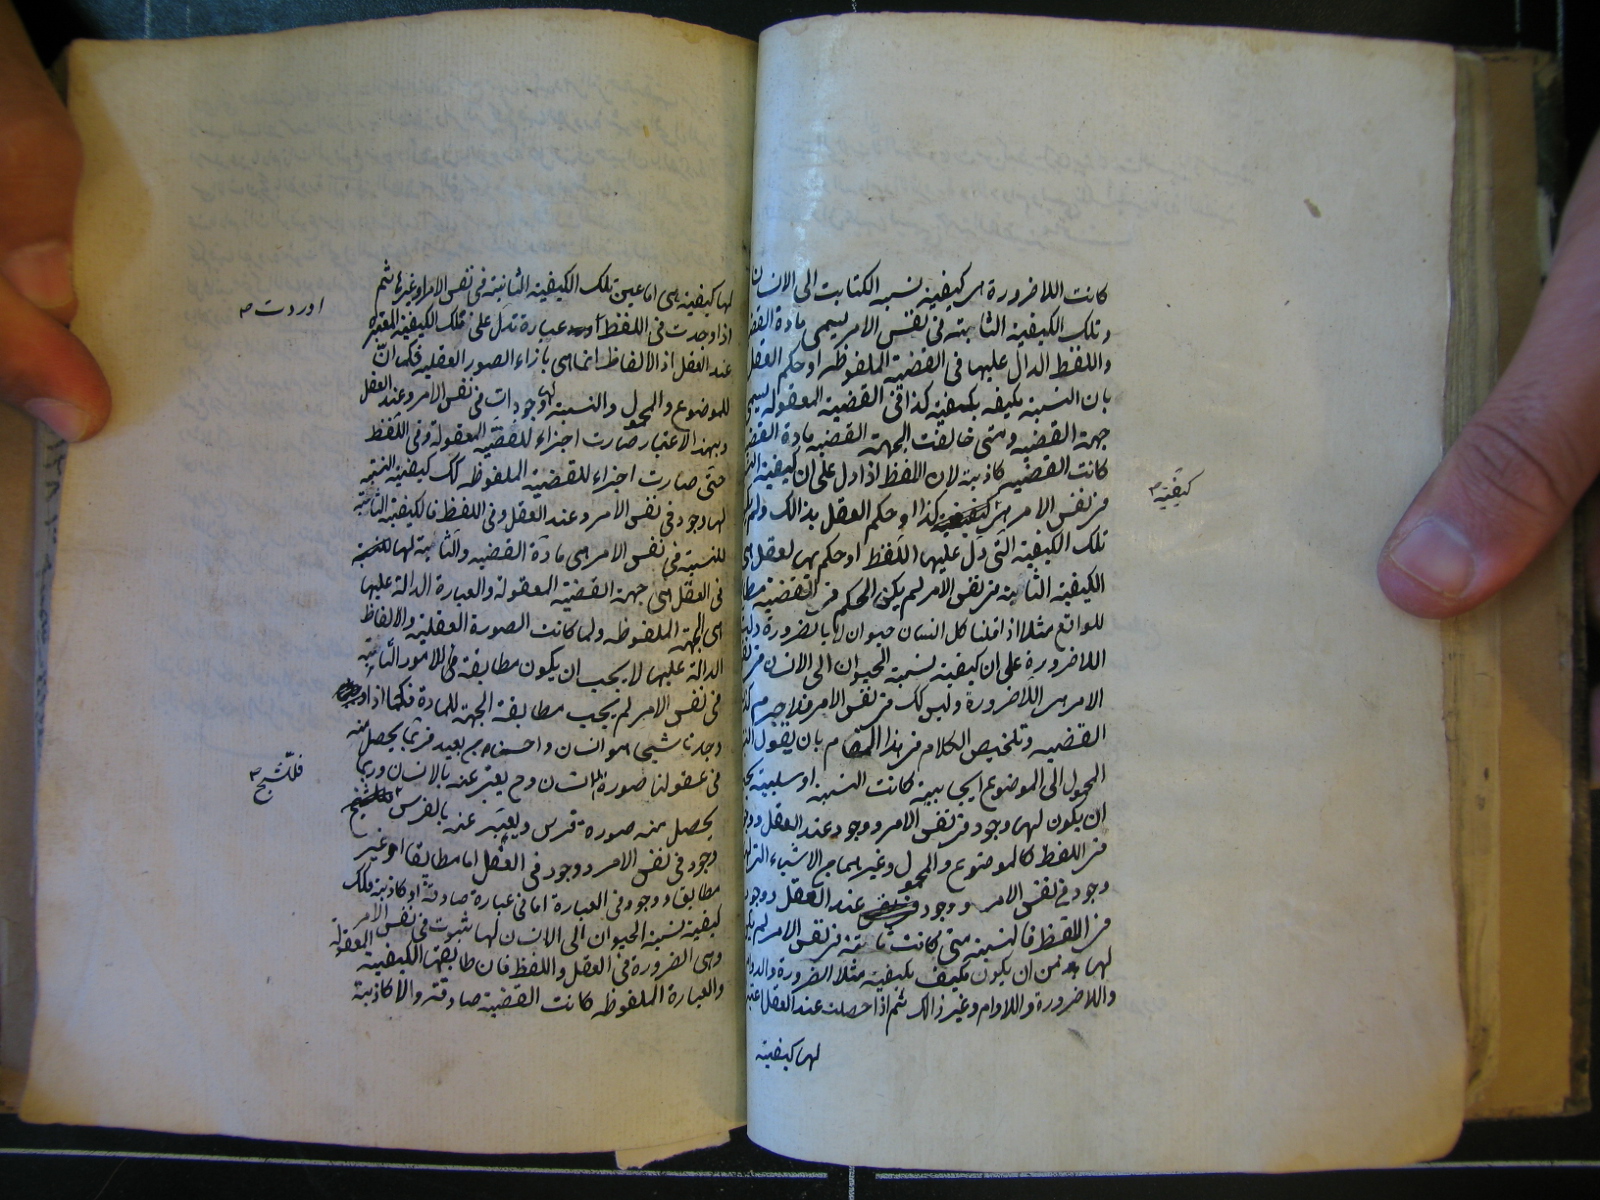 كانت اللاضرورة هى كيفية نسبه الكتابت الى الانسان
وتلك الكيفية الثابتة فى نفس الامر يسمى مادة
واللفظ الدال عليها فى القضية الملفوظه او حكم العقل
بان النسبة مكيفه بكيفية كذا فى القضية المعقوله يسمى
جهة القضيه ومتى خالفت الجهة القضيه مادة
كانت القضيه كاذبة لان اللفظ اذا دل على ان كيفية
فى نفس الامر هى كذا او حكم العقل بذالك ولم
تلك الكيفية التى دل عليها اللفظ او حكم بها لعقل
الكيفية الثابتة فى نفس الامر لم يكن الحكم فى القضية
للواقع مثلا اذا قلنا كل انسان حيوان لا بالضرورة
اللاضرورة على ان كيفية نسبة الحيوان الى الانسان فى
الامر هى اللاضرورة وليس كك فى نفس الامر فلا جرم
القضيه وتلخيص الكلام فى هذا المقام بان يقول
المحمول الى الموضوع ايجابية كانت النسبة او سلبية
ان يكون لها وجود فى نفس الامر ووجود عند العقل
فى اللفظ كالموضوع والمحمول وغيرهما من الاشياء التى
وجود فى نفس الامر ووجود عند العقل ووجود
فى اللفظ فالنسبة متى كانت ثابتة فى نفس الامر لم
لها من ان يكون مكيف بكيفية مثلا الضرورة والدوام
واللاضرورة واللادوام وغير ذالك ثم اذا حصلت عند العقل
لها كيفية
كيفية
لها كيفية هى اما عين تلك الكيفية الثابتة فى نفس الامر او غيرها ثم
اذا وجدت فى اللفظ عبارة تدل على تلك الكيفية المعتبره
عند العقل اذ الالفاظ انما هى بازاء الصور العقليه فكما ان
للموضوع والمحمول والنسبة وجودات فى نفس الامر وعند العقل
وبهذا الاعتبار صارت اجزاء للقضيه المعقولة وفى اللفظ
حتى صارت اجزاء للقضية الملفوظه كك كيفية النسبة
لها وجود فى نفس الامر وعند العقل وفى اللفظ فالكيفية الثابتة
للنسبة فى نفس الامر هى مادة القضيه والثابتة لها
فى العقل هى جهة القضية المعقولة والعبارة الدالة عليها
هى الجهة الملفوظه ولما كانت الصورة العقلية والالفاظ
الدالة عليها لا يجب ان يكون مطابقة للامور الثابتة
فى نفس الامر لم يجب مطابقة الجهة للمادة فكما اذا
وجدنا شيئا هو انسان واحسناه من بعيد فربما يحصل منه
فى عقولنا صورة انسان وح يعبر عنه بالانسان وربما
يحصل منه صورة فرس ويعبر عنه بالفرس
وجود فى نفس الامر ووجود فى العقل اما مطابق او غير
مطابق ووجود فى العبارة اما فى عبارة صادقة او كاذبة فكك
كيفية نسبة الحيوان الى الانسان لها ثبوت فى نفس الامر
وهى الضرورة فى العقل واللفظ فان طابقها الكيفية المعقولة
والعبارة الملفوظه كانت القضية صادقة والا كاذبة
اوردت
فللشبح